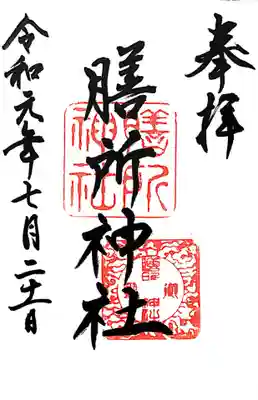 奉拝
膳所神社
令和元年七月二十一日
膳所
神社